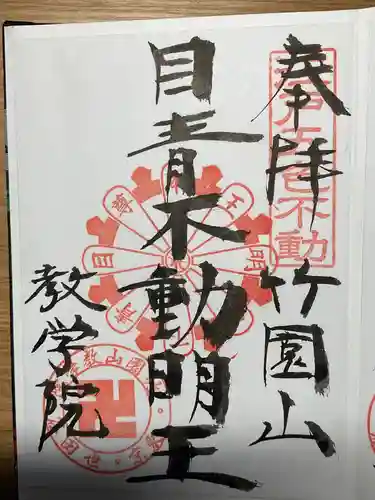 奉拝 竹園山
江戸五色不動
目青不動明王
教学院